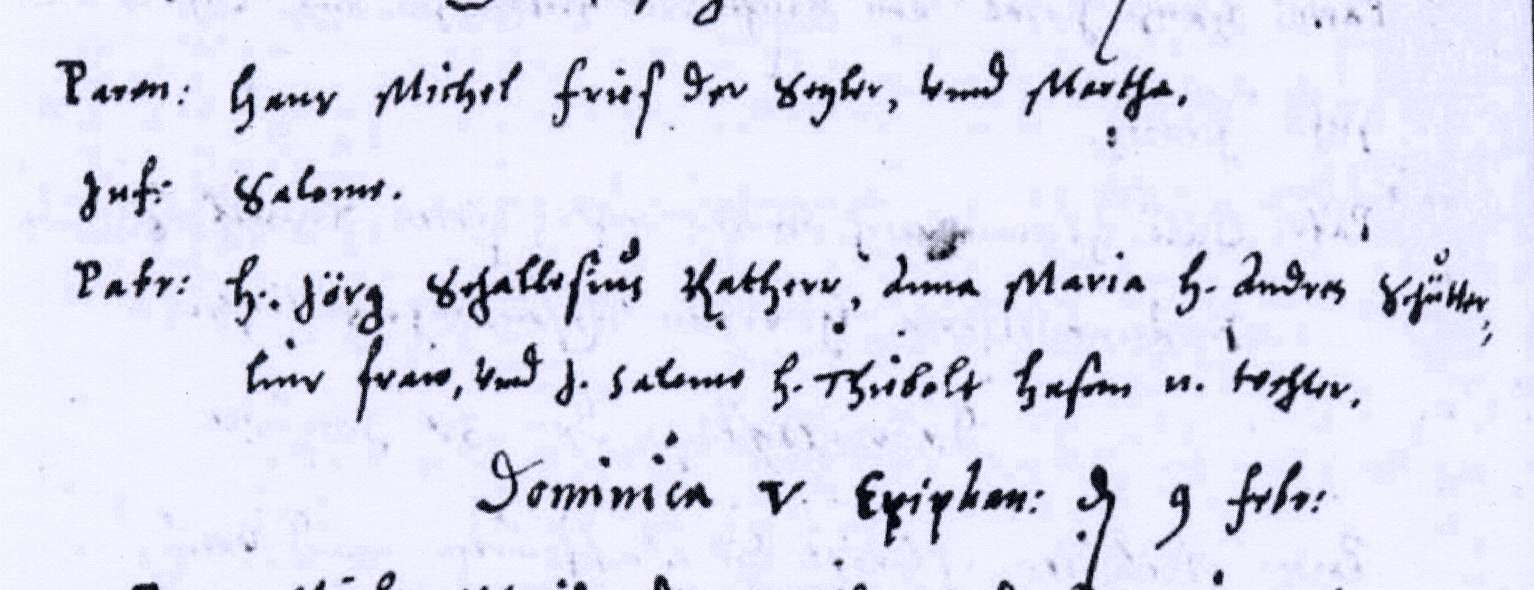 Paren: Hans Michel Fries der Seyler, vnnd Martha.
Inf: Salome.
Patr: H. Jörg Schallesius Rathherr, Anna Maria H. Andres Schütter,
lins fraw, vnd J. Salome H. Thiebolt Hasen n. tochter.
Dominica V Epiphan: d 9 Febr: